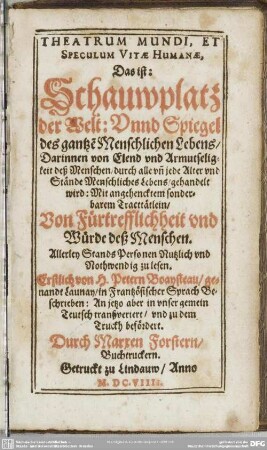 THEATRUM MUNDI, ET
SPECULUM VITÆ HUMANÆ,
Das ist:
Schauwplatz
der Welt: Vnnd Spiegel
des gantzē Menschlichen Lebens/
Darinnen von Elend vnd Armutselig-
keit deß Menschen/durch alle vñ jede Alter vnd
Stände Menschliches Lebens/gehandelt
wird: Mit angehencktem sonder-
barem Tracttätlein/
Von Fürtrefflichheit vnd
Würde deß Menschen.
Allerley Stands Personen Nutzlich vnd
Nothwendig zu lesen.
Erstlich von H. Petern Boaysteau/ ge-
nande Launay/in Frantzösischer Sprach Be-
schrieben: An jetzo aber in vnser gemein
Teutsch transveriert/ vnd zu dem
Truckh befördert.
Durch Marxen Forstern/
Buchtruckern.
Getruckt zu Lindauw/ Anno
M. DC. VIIII.